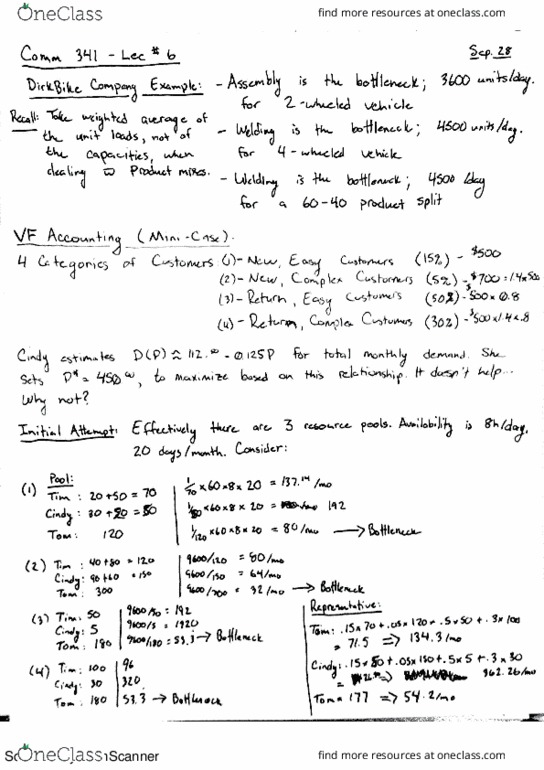 OneClass
find more resources at oneclass.com
Comm 341 - Lec # 6
Sep. 28
DirkBike Company Example: - Assembly is the bottleneck; 3600 units/day.
for 2-wheeled vehicle
Recall: Take weighted average of
the unit loads, not of
the capacities, when
dealing w Product mixes.
- Welding is the bottleneck; 4500 units/day.
for 4-wheeled vehicle
- Welding is the bottleneck; 4500 /day
for a 60-40 product split
VF Accounting (Mini-Case).
4 Categories of Customers (1)- New, Easy Customers (15%) - $500
(2)- New, Complex Customers (5%) - $700 = 1.4 x 500
(3)- Return, Easy Customers (50%) - $500 x 0.8
(4)- Return, Complex Customers (30%) - $500 x 1.4 x .8
Cindy estimates D(P) ≈ 112.50 - 0.125P for total monthly demand. She
sets P* = 450.00, to maximize based on this relationship. It doesn't help...
Why not?
Initial Attempt: Effectively there are 3 resource pools. Availability is 8h/day,
20 days/month. Consider:
Pool:
(1) Tim: 20+50 = 70 1/70 x 60 x 8 x 20 = 137.14 /mo
Cindy: 30+20 = 50 x 60 x 8 x 20 = 192
Tom: 120 1/120 x 60 x 8 x 20 = 80/mo → Bottleneck
(2) Tim: 40+80 = 120 9600/120 = 80/mo
Cindy: 90+60 = 150 9600/150 = 64/mo
Tom: 300 9600/300 = 32/mo → Bottleneck
(3) Tim: 50 9600/50 = 192
Cindy: 5 9600/5 = 1920
Tom: 180 9600/180 = 53.3 → Bottleneck
(4) Tim: 100 96
Cindy: 30 320
Tom: 180 53.3 → Bottleneck
Representative:
Tom: .15 x 70 + .05 x 120 + .5 x 50 + .3 x 100
= 71.5 ⇒ 134.3/mo
Cindy: .15 x 50 + .05 x 150 + .5 x 5 + .3 x 30
362.26/mo
Tom = 177 ⇒ 54.2/mo
Scanner
OneClass
find more resources at oneclass.com